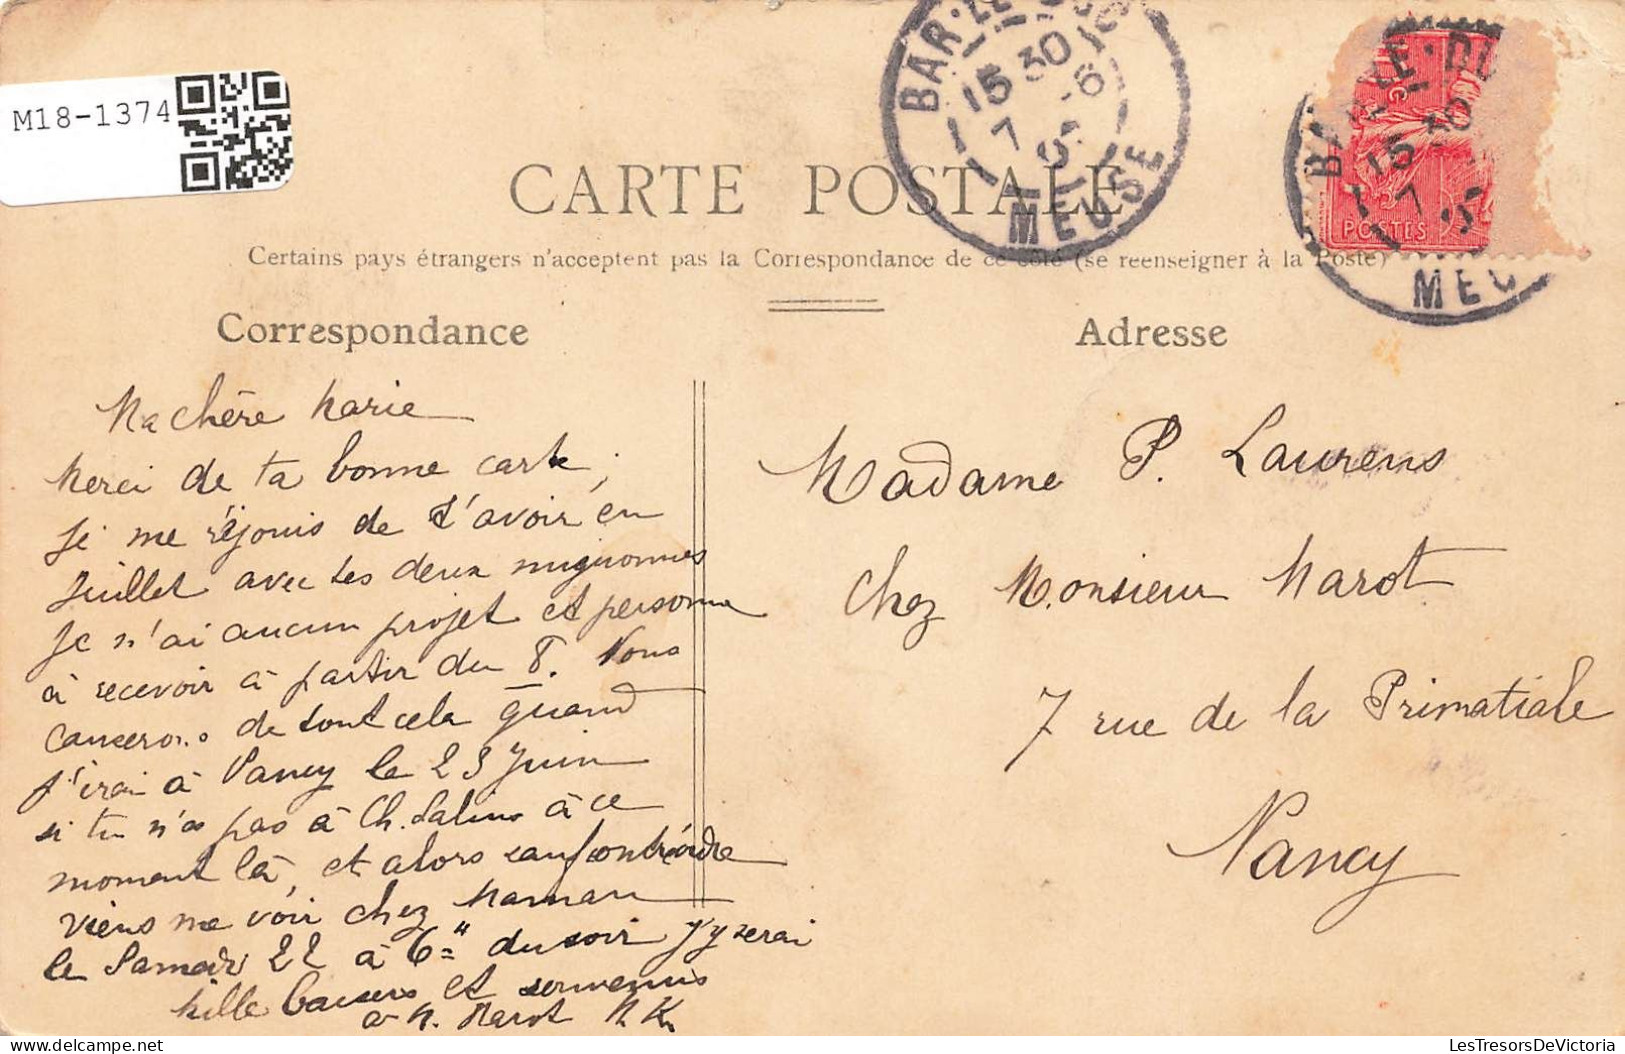 M18-1374
BAR-LE-DUC
15 30
7 -6
MEUSE
BAR-LE-DUC
15 30
7
POSTES
MEU
CARTE POSTALE
Certains pays étrangers n'acceptent pas la Correspondance de ce côté (se reenseigner à la Poste)
Correspondance
Adresse
Ma chère Marie
Merci de ta bonne carte ;
Je me réjouis de t'avoir en
Juillet avec tes deux mignonnes
Je n'ai aucun projet et personne
à recevoir à partir du 8. Nous
causerons de tout cela quand
j'irai à Nancy le 23 Juin
si tu n'es pas à Ch. Salins à ce
moment là, et alors sauf contrordre
viens me voir chez Maman
le Samedi 22 à 6h du soir j'y serai
Mille baisers et souvenirs
à M. Marot M K
Madame P. Laurens
chez Monsieur Marot
7 rue de la Primatiale
Nancy
LesTresorsDeVictoria